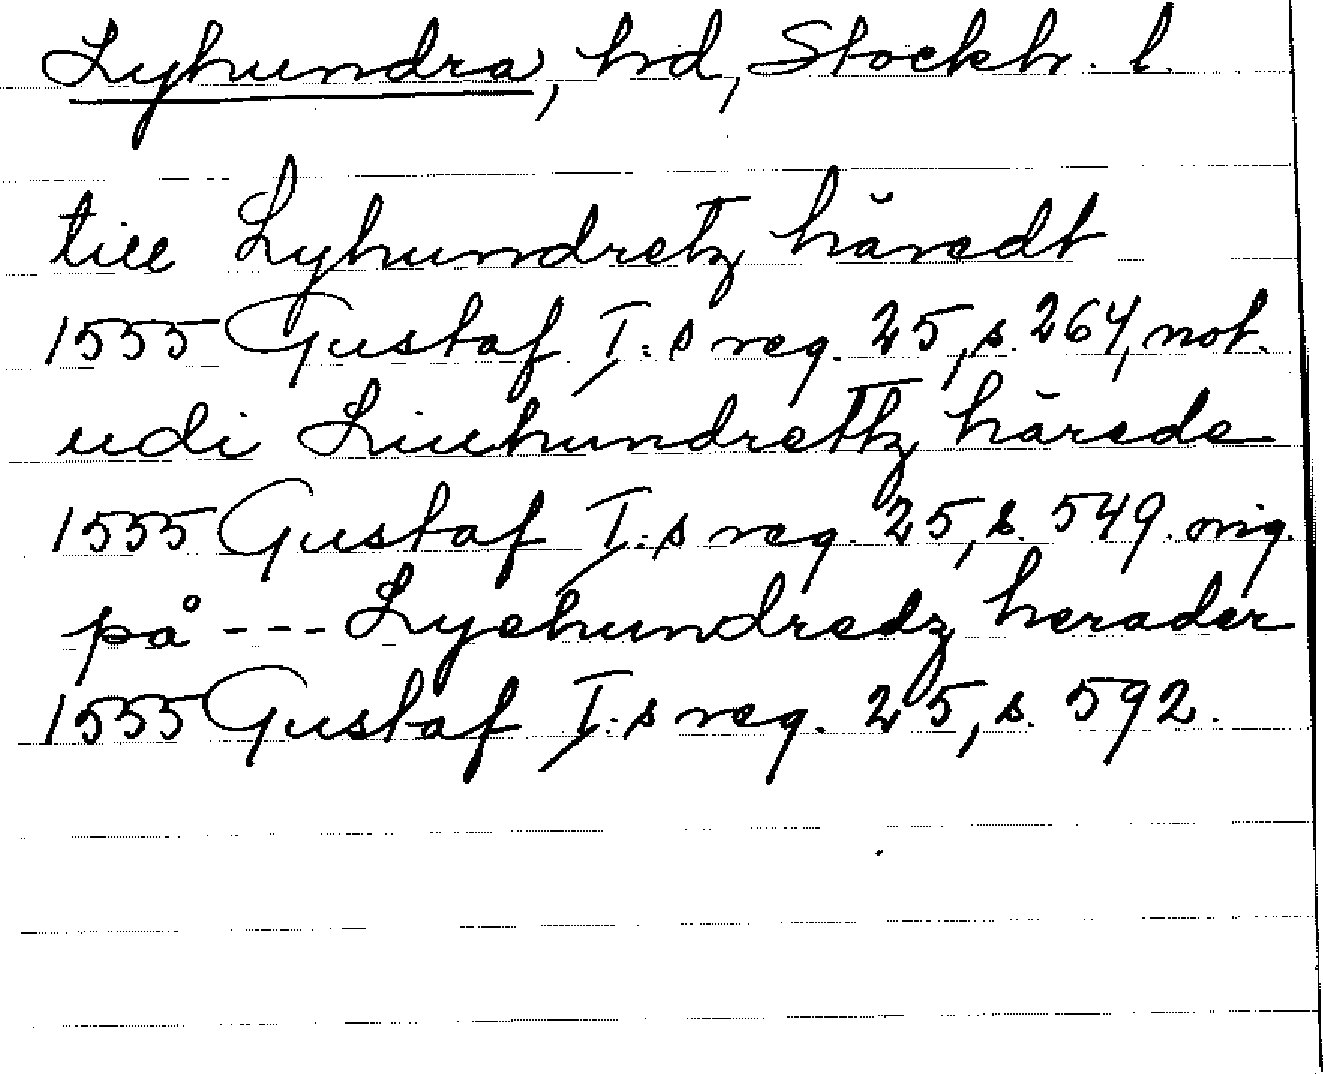 Lyhundra, hd, Stockh. l.
till Lyhundretz häredt
1555 Gustaf I:s reg. 25, s. 264, not.
udi Liuhundrettz härede
1555 Gustaf I:s reg. 25, s. 549. orig.
på --- Lyehundredz herader
1555 Gustaf I:s reg. 25, s. 592.